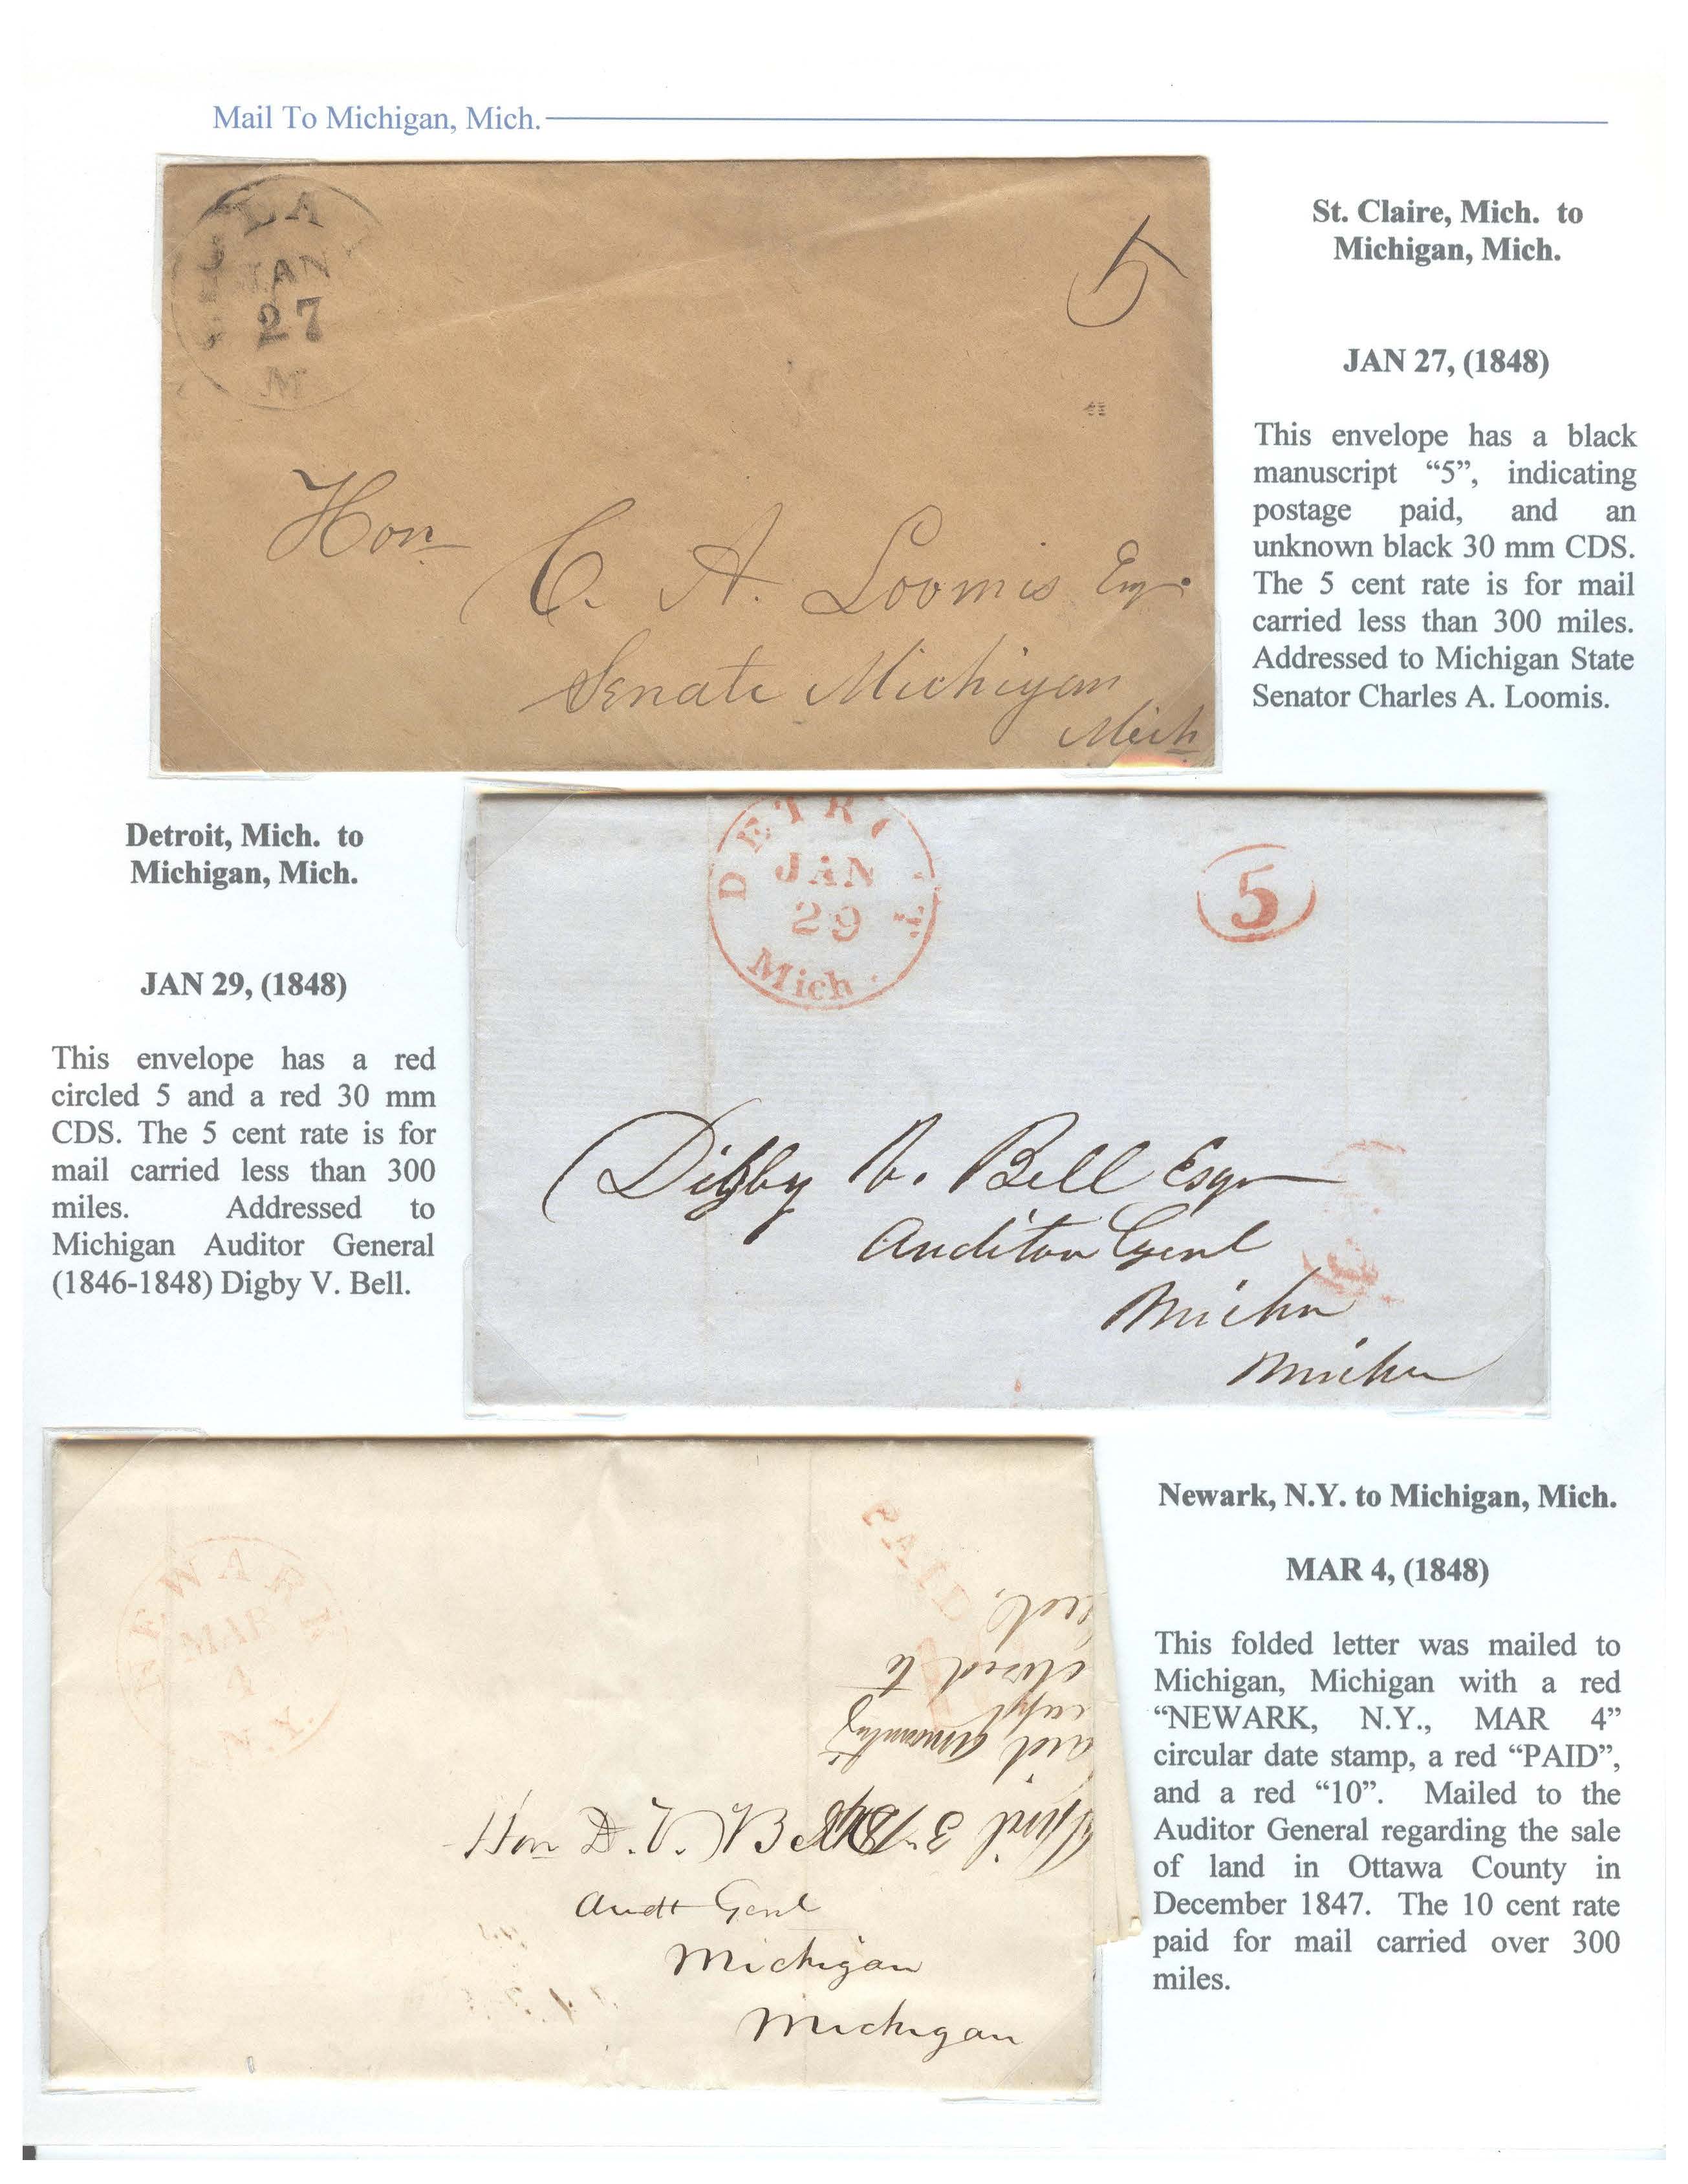 Mail To Michigan, Mich.
LA
JAN
27
M
5
Hon
C. A. Loomis Esqr
Senate Michigan
Mich
St. Claire, Mich. to
Michigan, Mich.
JAN 27, (1848)
This envelope has a black
manuscript “5”, indicating
postage paid, and an
unknown black 30 mm CDS.
The 5 cent rate is for mail
carried less than 300 miles.
Addressed to Michigan State
Senator Charles A. Loomis.
Detroit, Mich. to
Michigan, Mich.
JAN 29, (1848)
This envelope has a red
circled 5 and a red 30 mm
CDS. The 5 cent rate is for
mail carried less than 300
miles. Addressed to
Michigan Auditor General
(1846-1848) Digby V. Bell.
DETR
JAN
29
Mich.
5
Digby V. Bell Esqr
Auditor Genl
Michn
Michn
NEWARK
MAR
4
N.Y.
PAID
April 3 1848
amounting
to
Hon D. V. Bell
Audt Genl
Michigan
Michigan
Newark, N.Y. to Michigan, Mich.
MAR 4, (1848)
This folded letter was mailed to
Michigan, Michigan with a red
“NEWARK, N.Y., MAR 4”
circular date stamp, a red “PAID”,
and a red “10”. Mailed to the
Auditor General regarding the sale
of land in Ottawa County in
December 1847. The 10 cent rate
paid for mail carried over 300
miles.